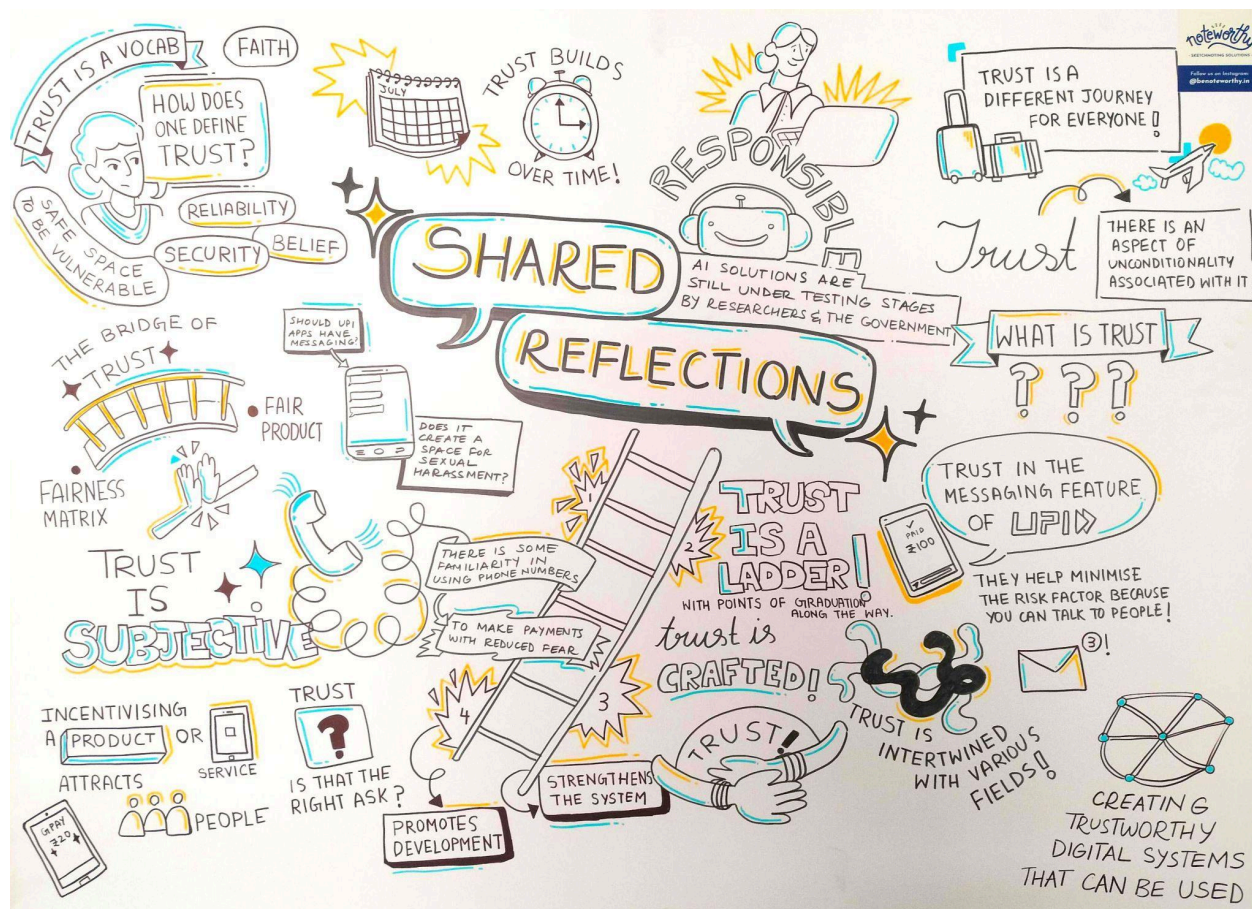 TRUST IS A VOCAB
FAITH
HOW DOES
ONE DEFINE
TRUST?
RELIABILITY
SECURITY
BELIEF
SAFE SPACE
TO BE VULNERABLE
JULY
TRUST BUILDS
OVER TIME!
RESPONSIBLE
AI SOLUTIONS ARE
STILL UNDER TESTING STAGES
BY RESEARCHERS & THE GOVERNMENT
noteworthy
SKETCHNOTING SOLUTIONS
Follow us on Instagram:
@benoteworthy.in
TRUST IS A
DIFFERENT JOURNEY
FOR EVERYONE!
Trust
THERE IS AN
ASPECT OF
UNCONDITIONALITY
ASSOCIATED WITH IT
SHARED
REFLECTIONS
WHAT IS TRUST
???
THE BRIDGE OF
TRUST
FAIR
PRODUCT
FAIRNESS
MATRIX
SHOULD UPI
APPS HAVE
MESSAGING?
DOES IT
CREATE A
SPACE FOR
SEXUAL
HARASSMENT?
TRUST
IS
SUBJECTIVE
THERE IS SOME
FAMILIARITY IN
USING PHONE NUMBERS
TO MAKE PAYMENTS
WITH REDUCED FEAR
1
2
3
4
TRUST
IS A
LADDER!
WITH POINTS OF GIRADUATION
ALONG THE WAY.
trust is
CRAFTED!
TRUST IN THE
MESSAGING FEATURE
OF UPI
PAID
₹100
THEY HELP MINIMISE
THE RISK FACTOR BECAUSE
YOU CAN TALK TO PEOPLE!
3!
TRUST IS
INTERTWINED
WITH VARIOUS
FIELDS!
INCENTIVISING
A PRODUCT OR
SERVICE
ATTRACTS
PEOPLE
GPAY
₹20
TRUST
?
IS THAT THE
RIGHT ASK?
PROMOTES
DEVELOPMENT
STRENGTHENS
THE SYSTEM
TRUST!
CREATING
TRUSTWORTHY
DIGITAL SYSTEMS
THAT CAN BE USED